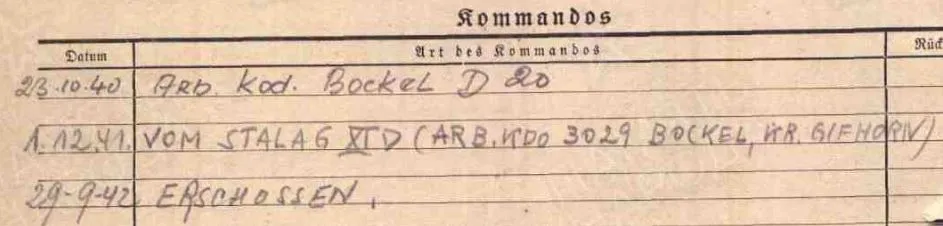 Kommandos
Datum Art des Kommandos Rück
23.10.40 Arb. Kod. Bockel D 20
1.12.41. VOM STALAG XI D (ARB. KDO 3029 BOCKEL, KR. GIFHORN)
29-9-42 ERSCHOSSEN.